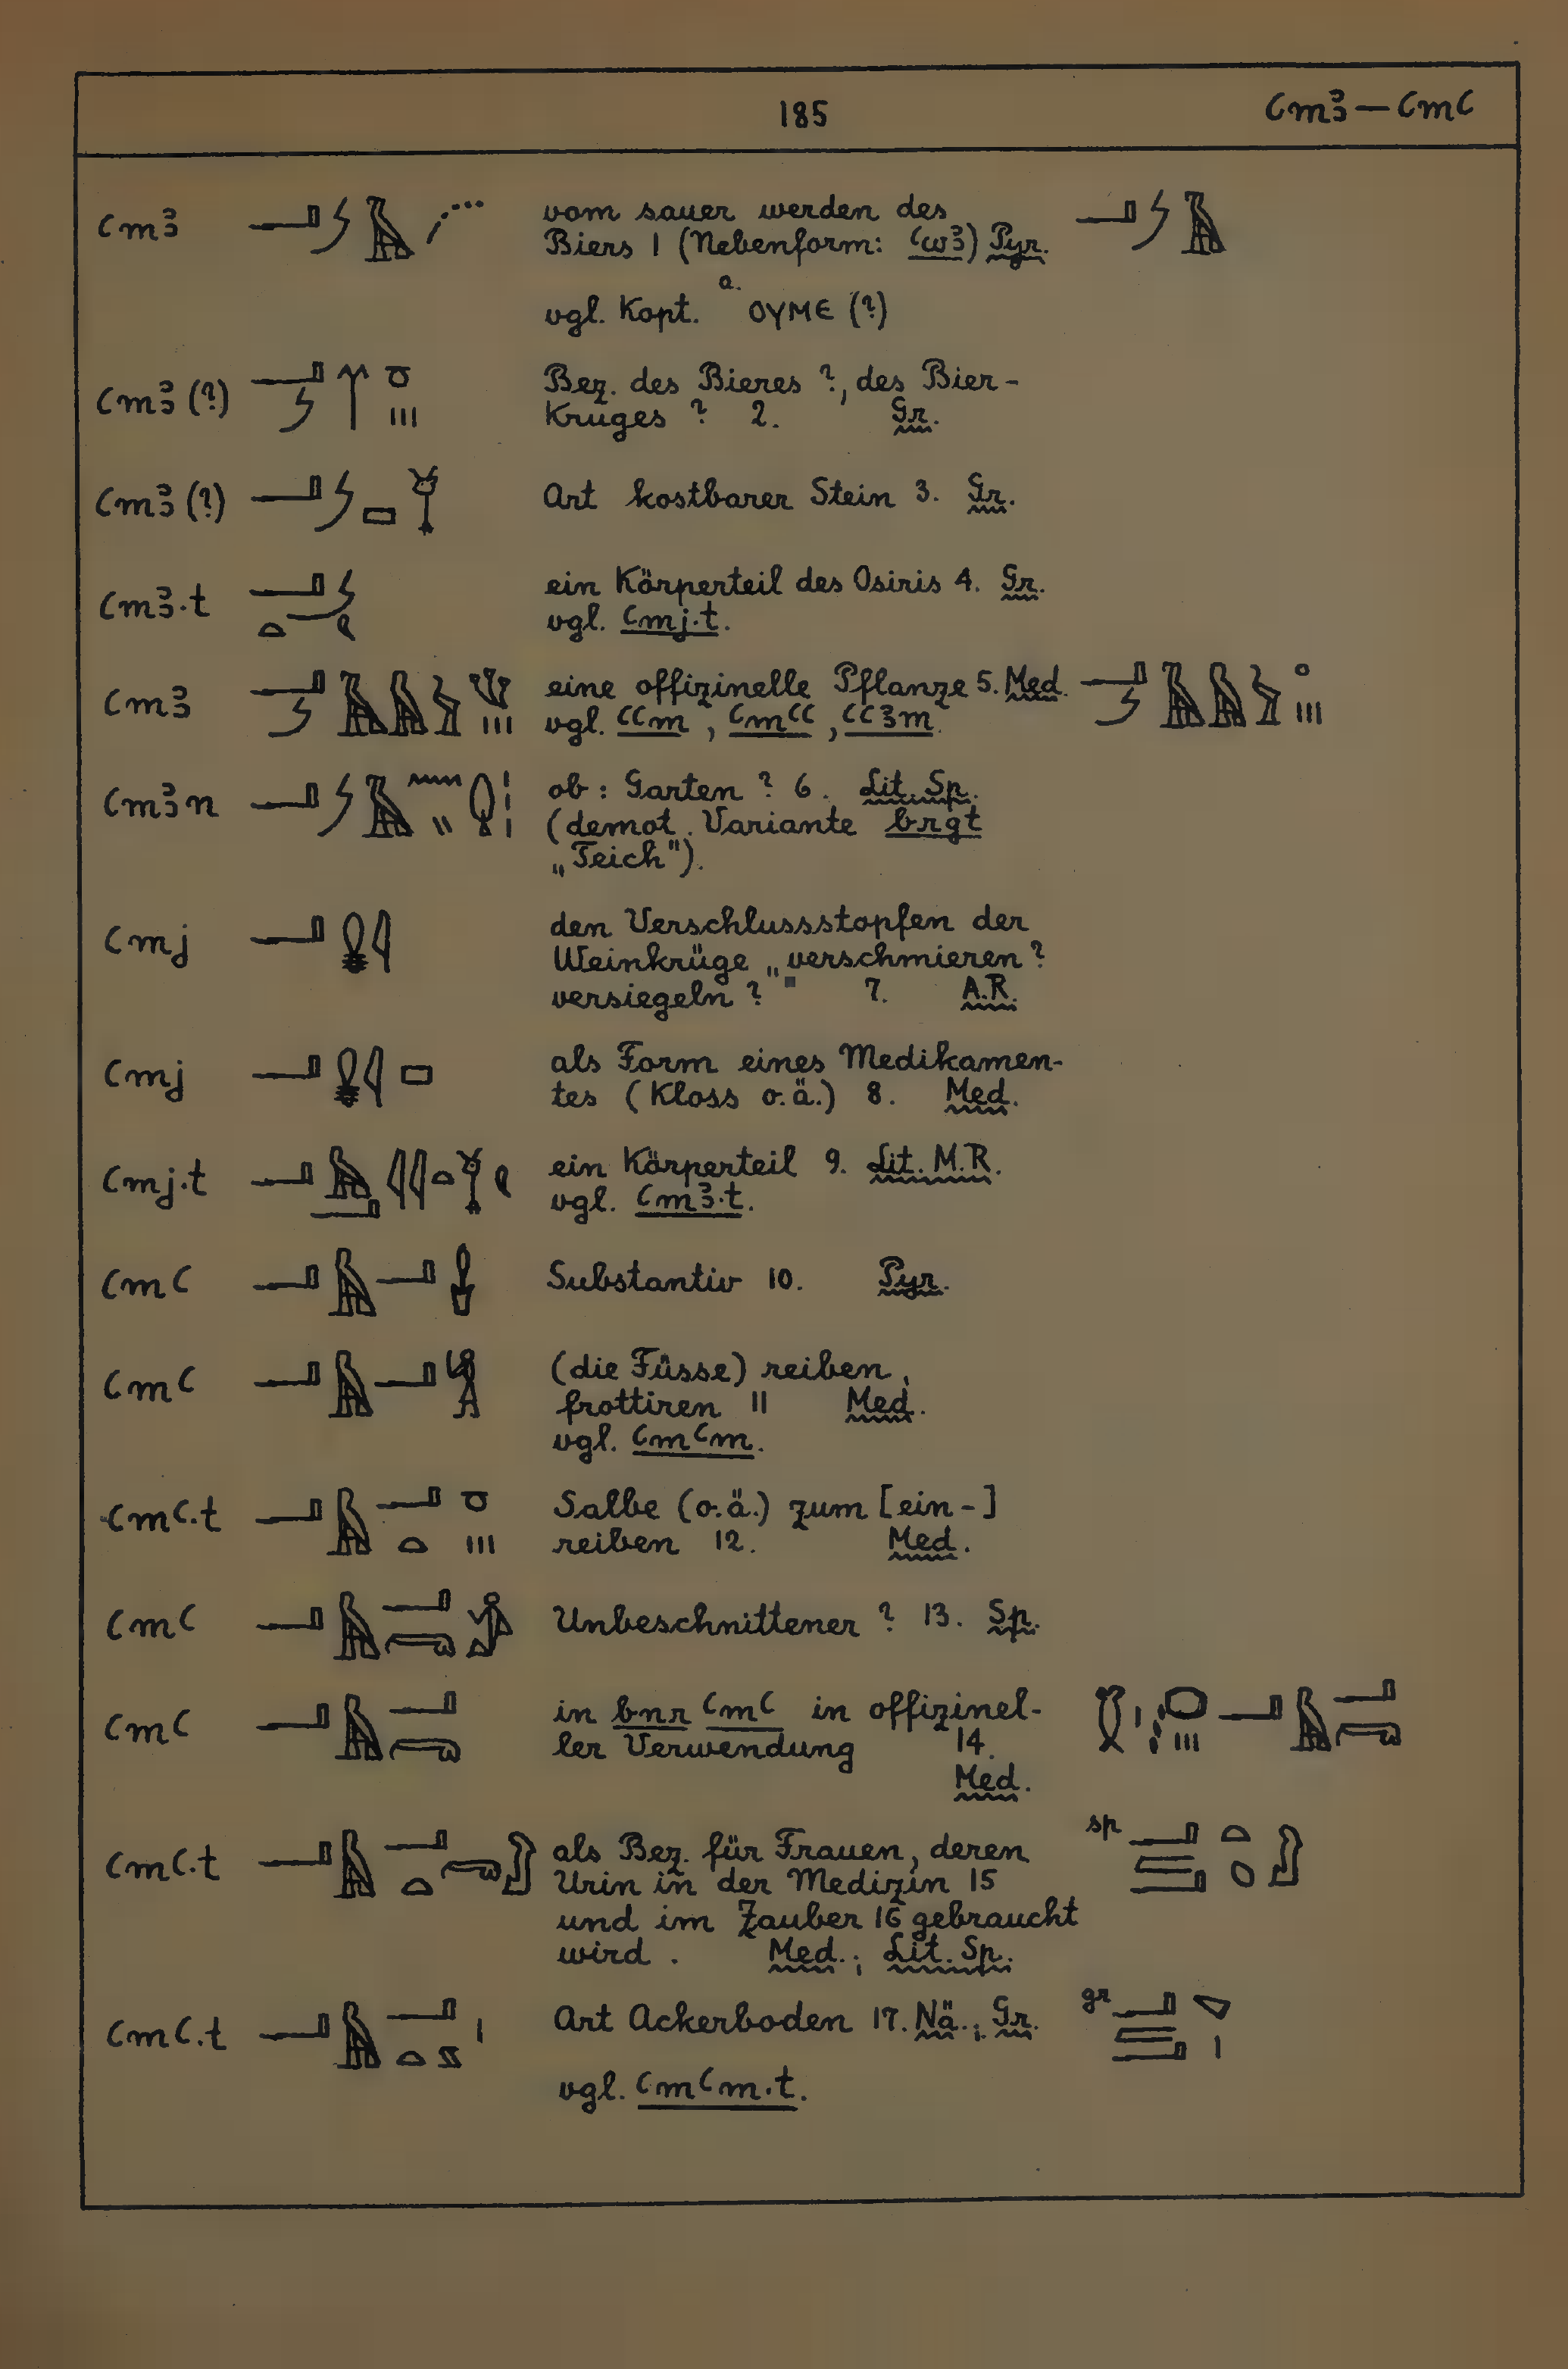 185
ꜥmꜣ — ꜥmꜥ
ꜥmꜣ vom sauer werden des
Biers 1 (Nebenform: ꜥwꜣ) Pyr.
vgl. Kopt. a. ⲟⲩⲙⲉ (?)
ꜥmꜣ (?) Bez. des Bieres ?, des Bier-
kruges ? 2. Gr.
ꜥmꜣ (?) Art kostbarer Stein 3. Gr.
ꜥmꜣ.t ein Körperteil des Osiris 4. Gr.
vgl. ꜥmj.t.
ꜥmꜣ eine offizinelle Pflanze 5. Med.
vgl. ꜥꜥm, ꜥmꜥꜥ, ꜥꜥꜣm.
ꜥmꜣn ob: Garten ? 6. Lit. Sp.
(demot. Variante brgt
„Teich").
ꜥmj den Verschlussstopfen der
Weinkrüge „verschmieren ?
versiegeln ?" 7. A.R.
ꜥmj als Form eines Medikamen-
tes (Kloss o.ä.) 8. Med.
ꜥmj.t ein Körperteil 9. Lit. M.R.
vgl. ꜥmꜣ.t.
ꜥmꜥ Substantiv 10. Pyr.
ꜥmꜥ (die Füsse) reiben,
frottiren 11 Med.
vgl. ꜥmꜥm.
ꜥmꜥ.t Salbe (o.ä.) zum [ein-]
reiben 12. Med.
ꜥmꜥ Unbeschnittener ? 13. Sp.
ꜥmꜥ in bnr ꜥmꜥ in offizinel-
ler Verwendung 14.
Med.
ꜥmꜥ.t als Bez. für Frauen, deren sp
Urin in der Medizin 15
und im Zauber 16 gebraucht
wird. Med.; Lit. Sp.
ꜥmꜥ.t Art Ackerboden 17. Nä.; Gr. gr
vgl. ꜥmꜥm.t.